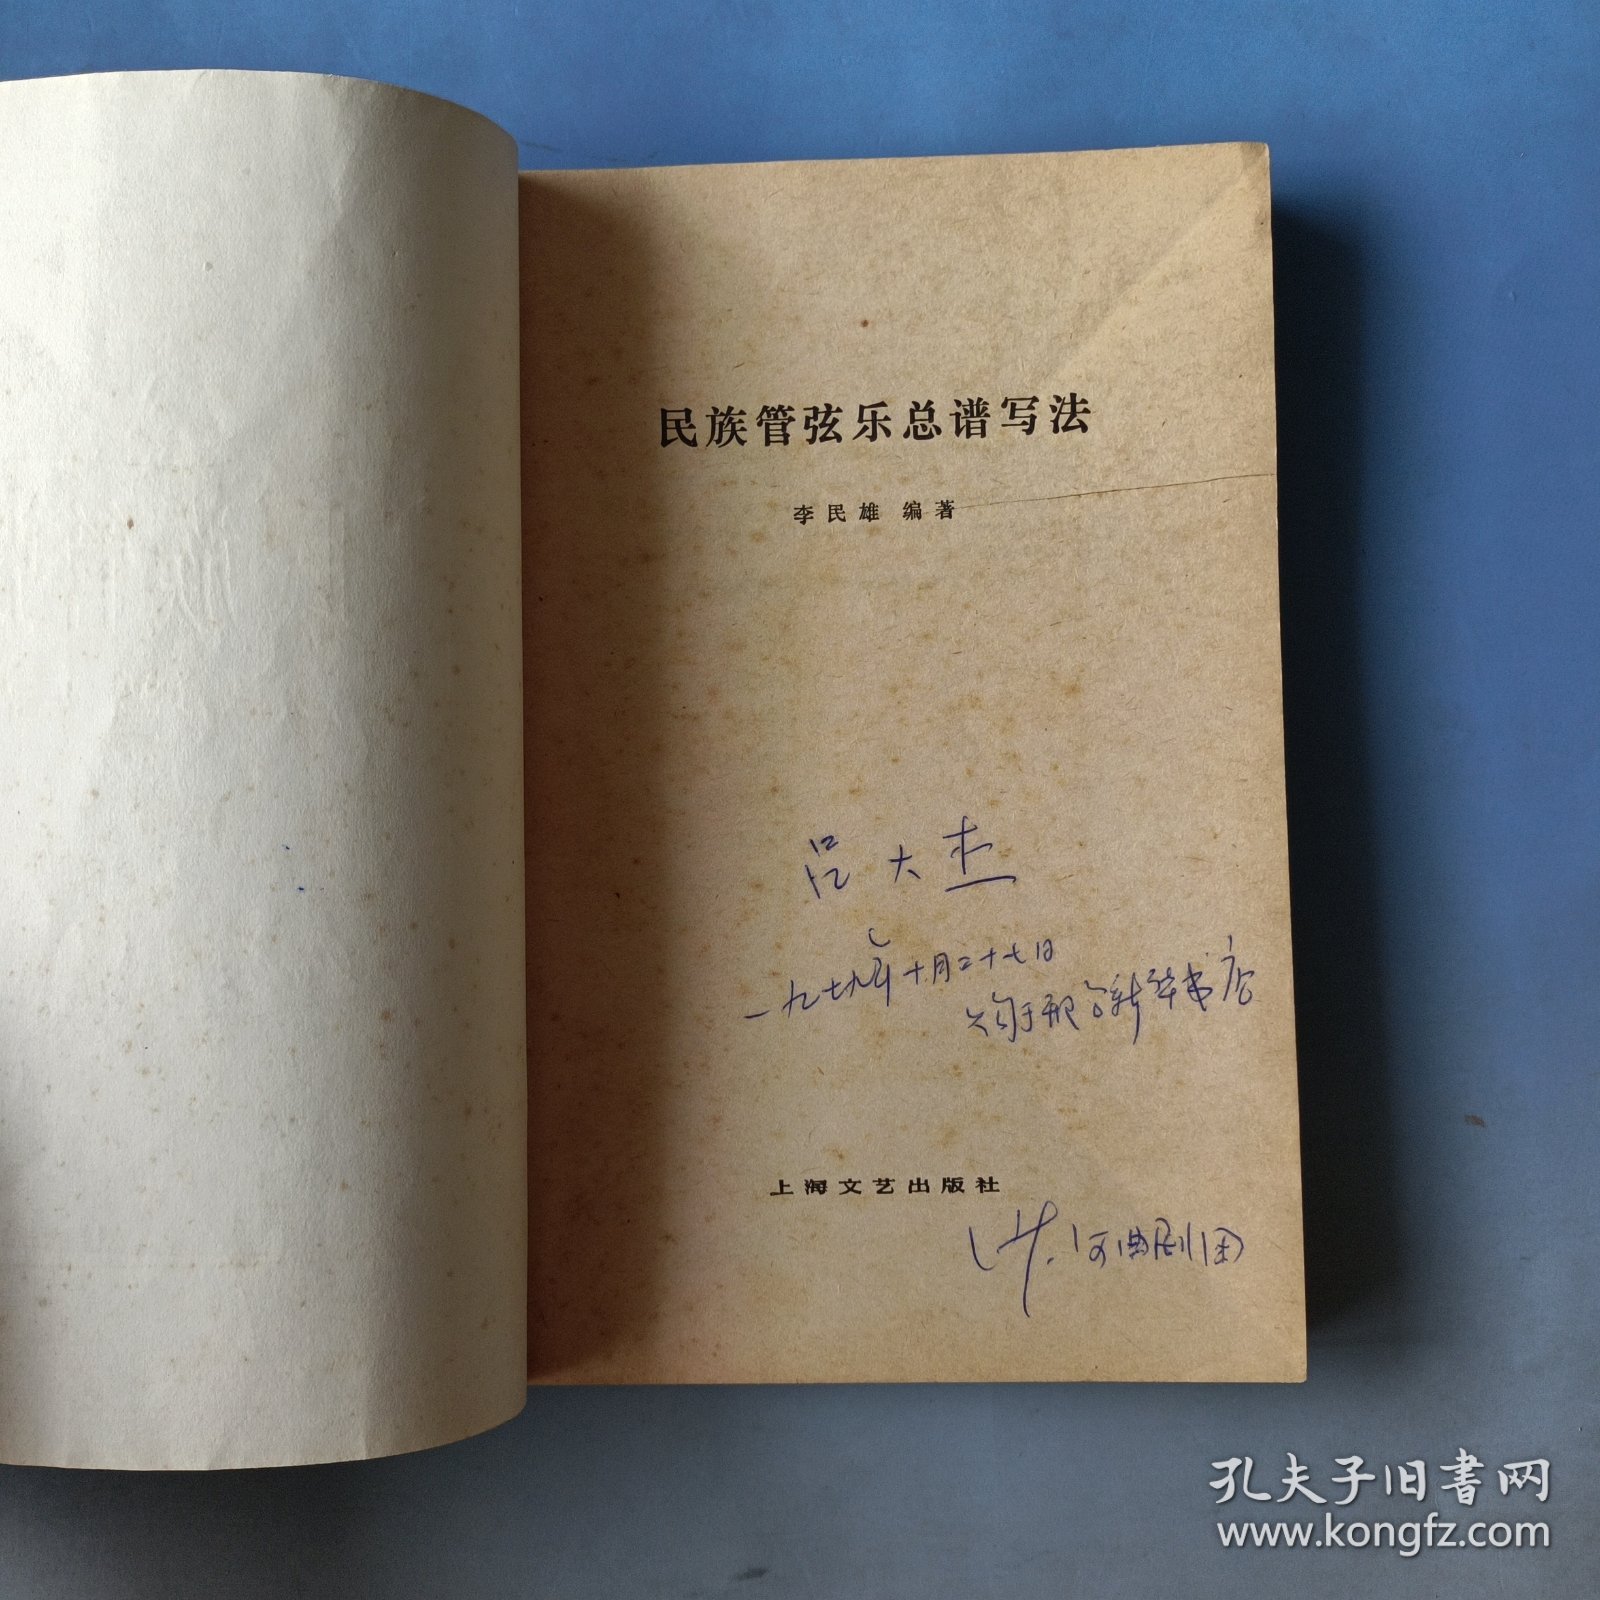 民族管弦乐总谱写法
李民雄 编著
吕大杰
一九七九年十月二十七日
购于 新华书店
上海文艺出版社
曲剧团
孔夫子旧书网
www.kongfz.com